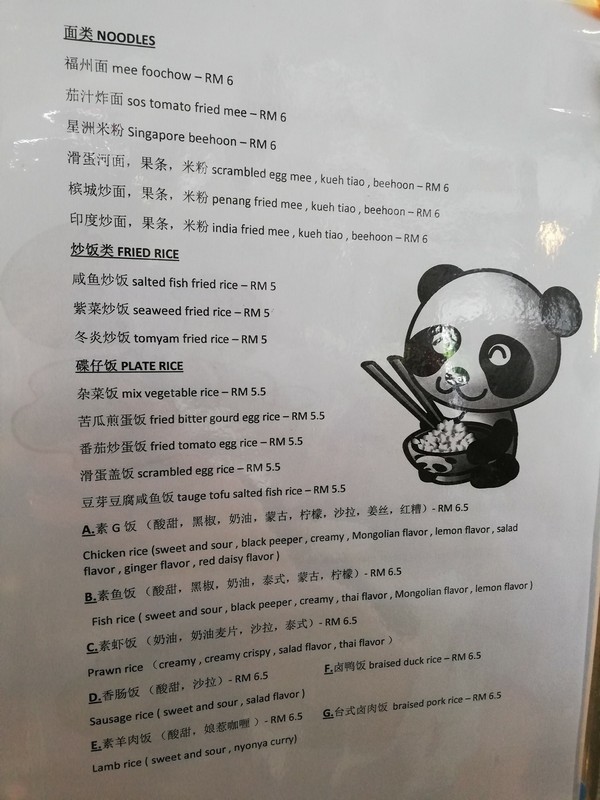 面类 NOODLES
福州面 mee foochow – RM 6
茄汁炸面 sos tomato fried mee – RM 6
星洲米粉 Singapore beehoon – RM 6
滑蛋河面，果条，米粉 scrambled egg mee , kueh tiao , beehoon – RM 6
槟城炒面，果条，米粉 penang fried mee , kueh tiao , beehoon – RM 6
印度炒面，果条，米粉 india fried mee , kueh tiao , beehoon – RM 6
炒饭类 FRIED RICE
咸鱼炒饭 salted fish fried rice – RM 5
紫菜炒饭 seaweed fried rice – RM 5
冬炎炒饭 tomyam fried rice – RM 5
碟仔饭 PLATE RICE
杂菜饭 mix vegetable rice – RM 5.5
苦瓜煎蛋饭 fried bitter gourd egg rice – RM 5.5
番茄炒蛋饭 fried tomato egg rice – RM 5.5
滑蛋盖饭 scrambled egg rice – RM 5.5
豆芽豆腐咸鱼饭 tauge tofu salted fish rice – RM 5.5
A.素 G 饭 （酸甜，黑椒，奶油，蒙古，柠檬，沙拉，姜丝，红糟）- RM 6.5
Chicken rice (sweet and sour , black peeper , creamy , Mongolian flavor , lemon flavor , salad
flavor , ginger flavor , red daisy flavor )
B.素鱼饭 （酸甜，黑椒，奶油，泰式，蒙古，柠檬）- RM 6.5
Fish rice ( sweet and sour , black peeper , creamy , thai flavor , Mongolian flavor , lemon flavor )
C.素虾饭 （奶油，奶油麦片，沙拉，泰式）- RM 6.5
Prawn rice （creamy , creamy crispy , salad flavor , thai flavor ）
D.香肠饭 （酸甜，沙拉）- RM 6.5
Sausage rice ( sweet and sour , salad flavor )
E.素羊肉饭 （酸甜，娘惹咖喱 ）- RM 6.5
Lamb rice ( sweet and sour , nyonya curry)
F.卤鸭饭 braised duck rice – RM 6.5
G.台式卤肉饭 braised pork rice – RM 6.5